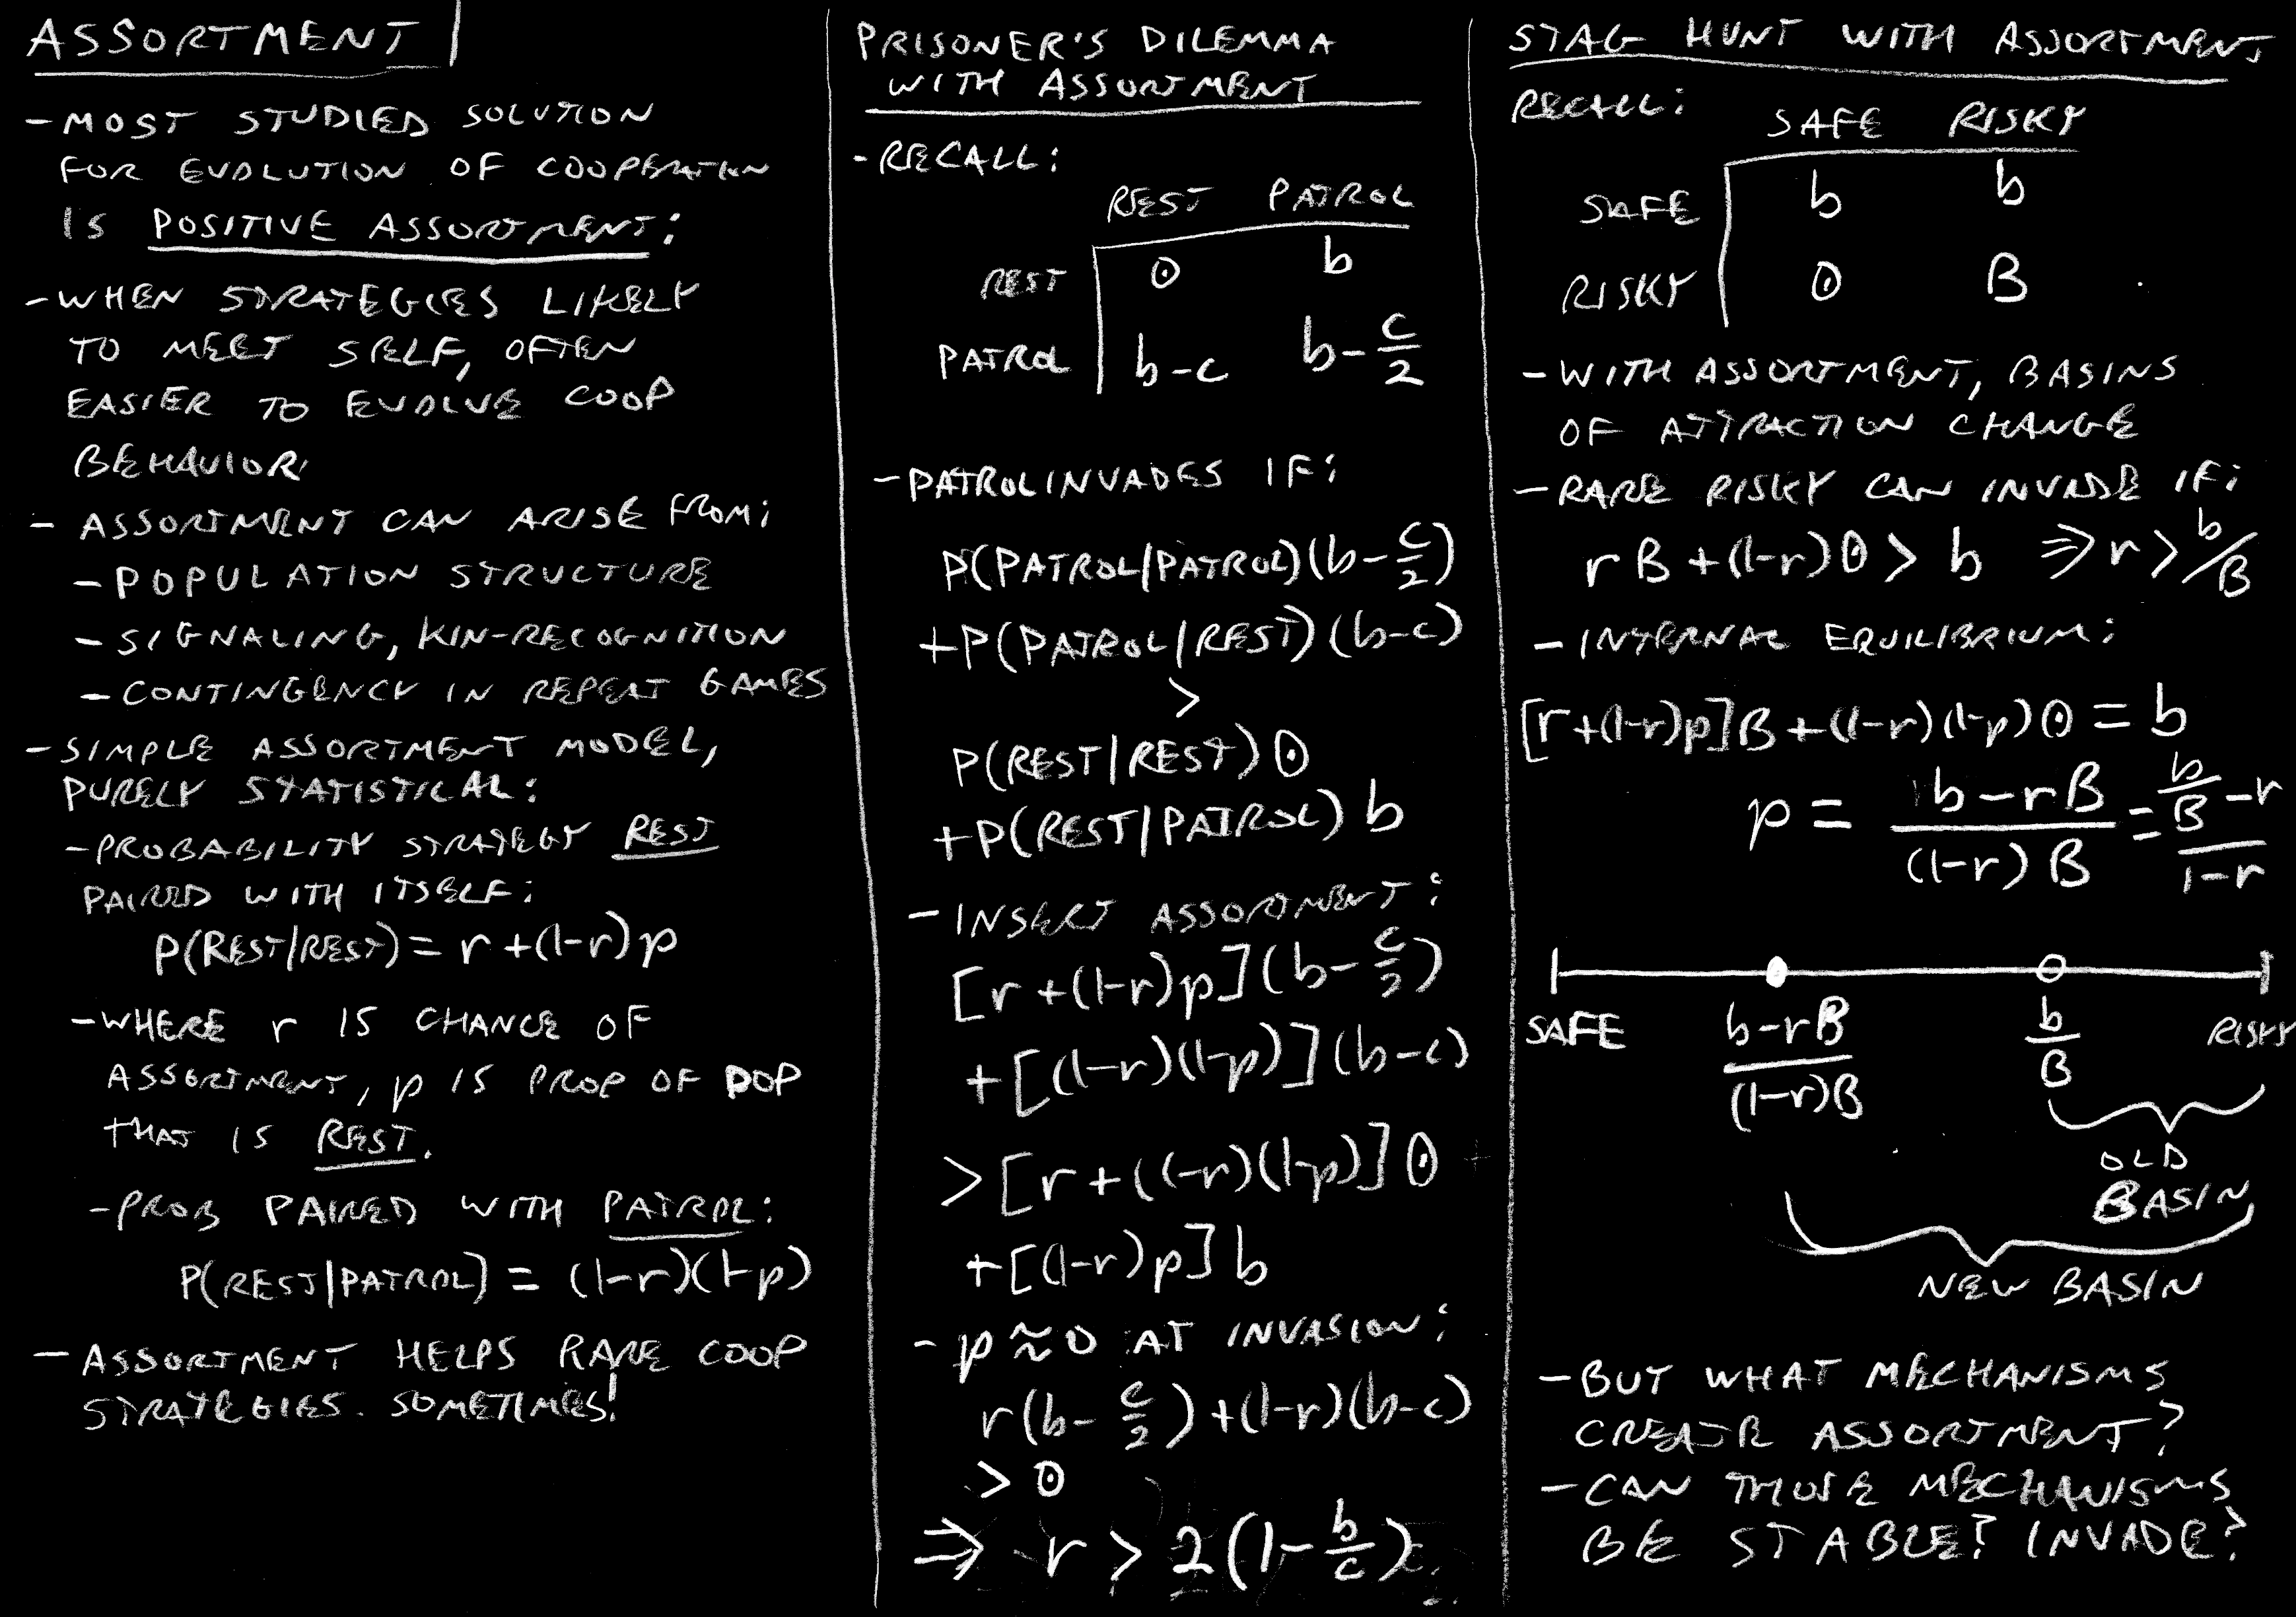 ASSORTMENT
- MOST STUDIED SOLUTION
FOR EVOLUTION OF COOPERATION
IS POSITIVE ASSORTMENT:
- WHEN STRATEGIES LIKELY
TO MEET SELF, OFTEN
EASIER TO EVOLVE COOP
BEHAVIOR
- ASSORTMENT CAN ARISE FROM:
- POPULATION STRUCTURE
- SIGNALING, KIN-RECOGNITION
- CONTINGENCY IN REPEAT GAMES
- SIMPLE ASSORTMENT MODEL,
PURELY STATISTICAL:
- PROBABILITY STRATEGY REST
PAIRED WITH ITSELF:
P(REST|REST) = r + (1-r)p
- WHERE r IS CHANCE OF
ASSORTMENT, p IS PROP OF POP
THAT IS REST.
- PROB PAIRED WITH PATROL:
P(REST|PATROL) = (1-r)(1-p)
- ASSORTMENT HELPS RARE COOP
STRATEGIES. SOMETIMES!
PRISONER'S DILEMMA
WITH ASSORTMENT
- RECALL:
REST PATROL
REST 0 b
PATROL b-c b-c/2
- PATROL INVADES IF:
P(PATROL|PATROL)(b-c/2)
+P(PATROL|REST)(b-c)
>
P(REST|REST)0
+P(REST|PATROL)b
- INSERT ASSORTMENT:
[r+(1-r)p](b-c/2)
+[(1-r)(1-p)](b-c)
>[r+(1-r)(1-p)]0
+[(1-r)p]b
- p≈0 AT INVASION:
r(b-c/2)+(1-r)(b-c)
>0
⇒ r > 2(1-b/c)
STAG HUNT WITH ASSORTMENT
RECALL:
SAFE RISKY
SAFE b b
RISKY 0 B
- WITH ASSORTMENT, BASINS
OF ATTRACTION CHANGE
- RARE RISKY CAN INVADE IF:
rB+(1-r)0 > b ⇒ r > b/B
- INTERNAL EQUILIBRIUM:
[r+(1-r)p]B+(1-r)(1-p)0 = b
p = (b-rB)/((1-r)B) = (b/B-r)/(1-r)
SAFE (b-rB)/((1-r)B) b/B RISKY
OLD
BASIN
NEW BASIN
- BUT WHAT MECHANISMS
CREATE ASSORTMENT?
- CAN THOSE MECHANISMS
BE STABLE? INVADE?